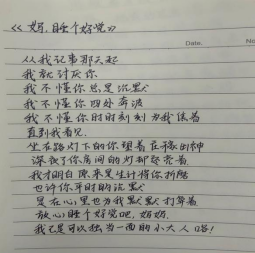 《奶,睡个好觉》
Date.
No
从我记事那天起
我就讨厌你
我不懂你总是沉默
我不懂你四处奔波
我不懂你时时刻刻为我
直到我看见
坐在路灯下的你望着在出神
深夜了你房间的灯却亮着
我才明白原来是生计将你折
也许你平时的沉默
是在心里也为我默默打算着
放心睡个好觉吧,奶奶.
我已是可以独当一面的小大人咯!